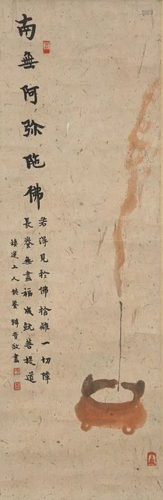 南無阿弥陀佛
若得見於佛捨離一切障
長養無盡福成就菩提道